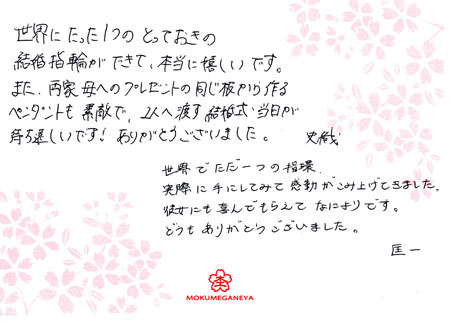 世界にたった1つのとっておきの
結婚指輪ができて、本当に嬉しいです。
また、両家母へのプレゼントの同じ板から作る
ペンダントも素敵で、2人へ渡す結婚式当日が
待ち遠しいです！ありがとうございました。
世界でただ一つの指環
実際に手にしてみて感動がこみ上げてきました。
彼女にも喜んでもらえてなによりです。
どうもありがとうございました。
匡一
MOKUMEGANEYA